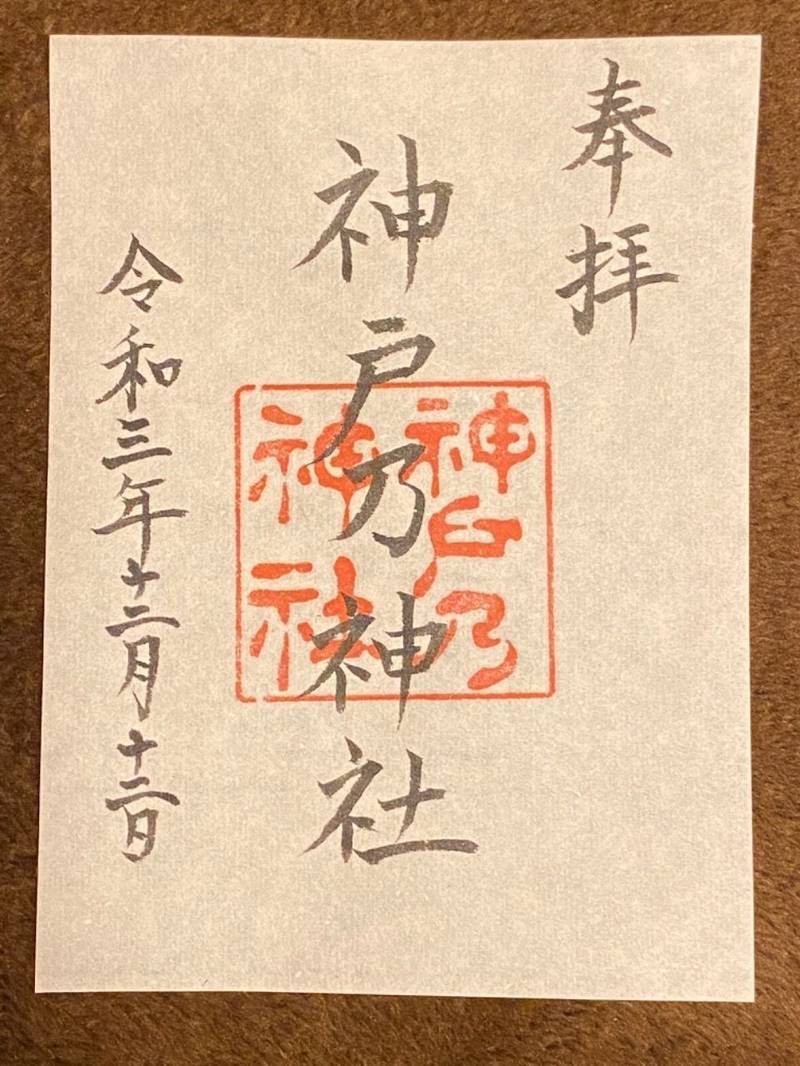 奉拝
神戸乃神社
神戸乃
神社
令和三年十二月十二日